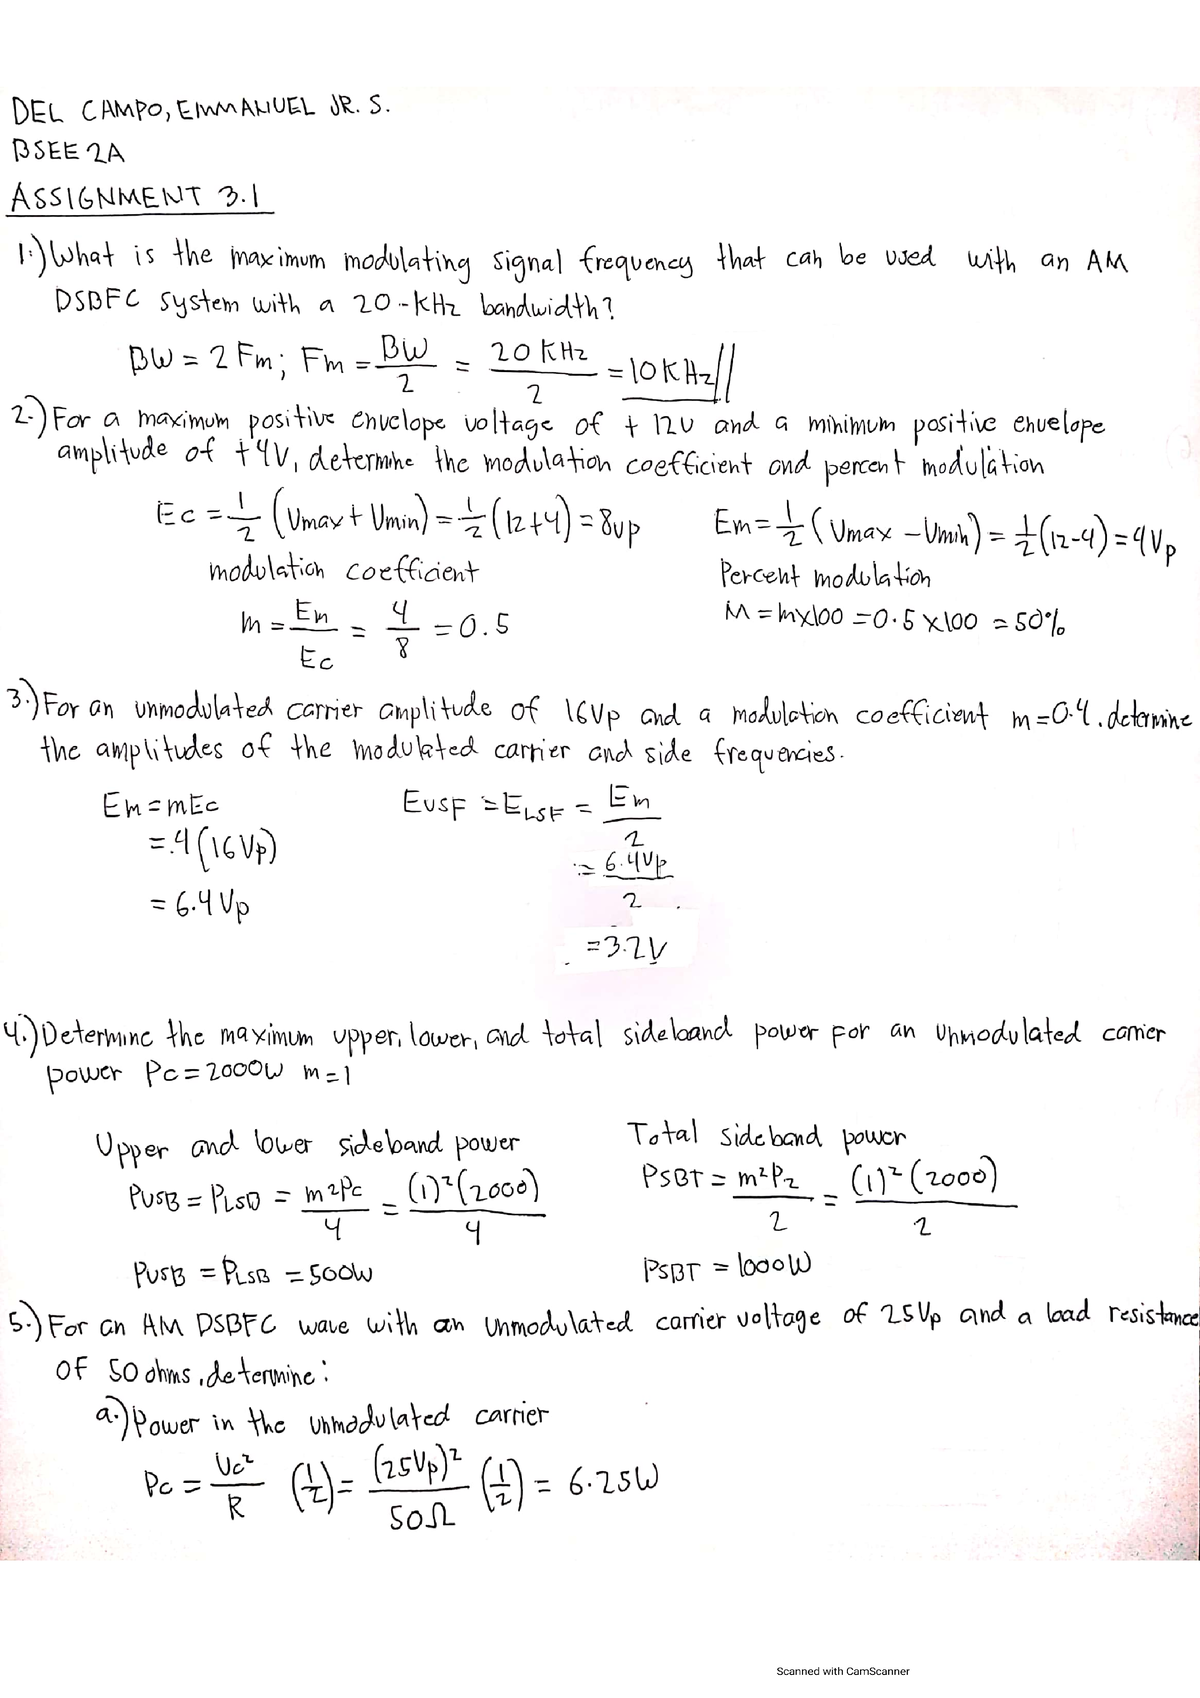 DEL CAMPO, EMMANUEL JR. S.
BSEE 2A
ASSIGNMENT 3.1
1.) What is the maximum modulating signal frequency that can be used with an AM
DSBFC system with a 20-kHz bandwidth?
BW = 2Fm; Fm = BW/2 = 20KHz/2 = 10KHz//
2.) For a maximum positive envelope voltage of +12V and a minimum positive envelope
amplitude of +4V, determine the modulation coefficient and percent modulation
Ec = 1/2 (Vmax + Vmin) = 1/2 (12+4) = 8Vp Em = 1/2 (Vmax - Vmin) = 1/2 (12-4) = 4Vp
modulation coefficient Percent modulation
m = Em/Ec = 4/8 = 0.5 M = mx100 = 0.5 x100 = 50%
3.) For an unmodulated carrier amplitude of 16Vp and a modulation coefficient m=0.4. determine
the amplitudes of the modulated carrier and side frequencies.
Em = mEc EUSF = ELSF = Em/2
= .4(16Vp) = 6.4Vp/2
= 6.4Vp
= 3.2V
4.) Determine the maximum upper, lower, and total sideband power for an unmodulated carrier
power Pc = 2000W m = 1
Upper and lower sideband power Total sideband power
PUSB = PLSB = m²Pc/4 = (1)²(2000)/4 PSBT = m²P2/2 = (1)²(2000)/2
PUSB = PLSB = 500W PSBT = 1000W
5.) For an AM DSBFC wave with an unmodulated carrier voltage of 25Vp and a load resistance
OF 50 ohms, determine:
a.) Power in the unmodulated carrier
Pc = Vc²/R (1/2) = (25Vp)²/50Ω (1/2) = 6.25W
Scanned with CamScanner